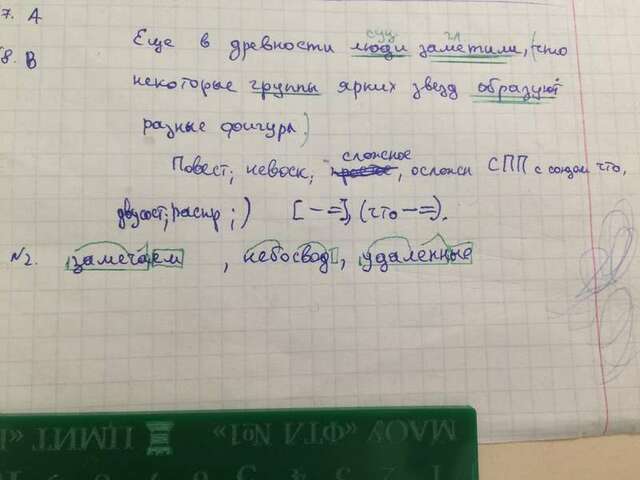 7. А
8. В
Еще в древности люди заметили, (что
сущ
гл
некоторые группы ярких звезд образуют
разные фигуры)
Повест; невоскл; сложное, ослож. СПП с союзом что,
двусост; распр;) [– =], (что – =).
№2. замечаем, небосвод, удаленные
МАОУ «ФТИ №1»
ЛИМТ